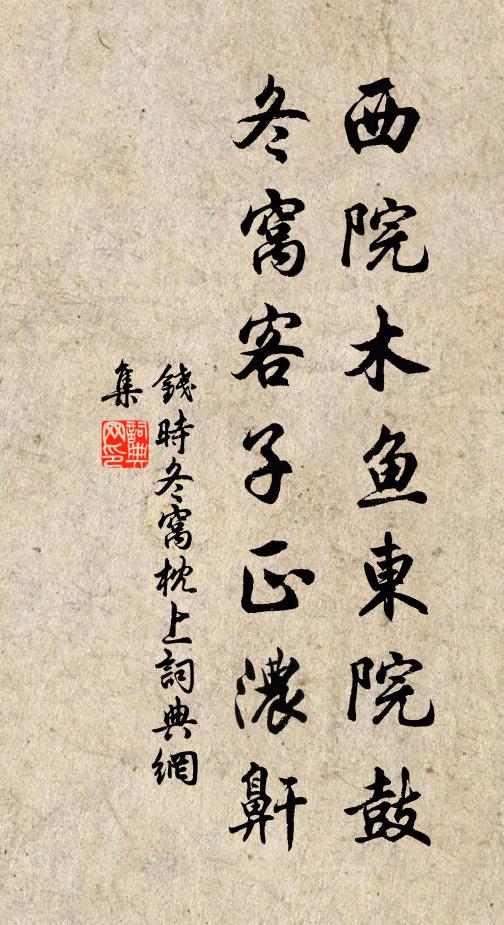 西院木鱼東院鼓
冬窩客子正濃鼾
錢時冬窩枕上詞典網
集
詞典
网印